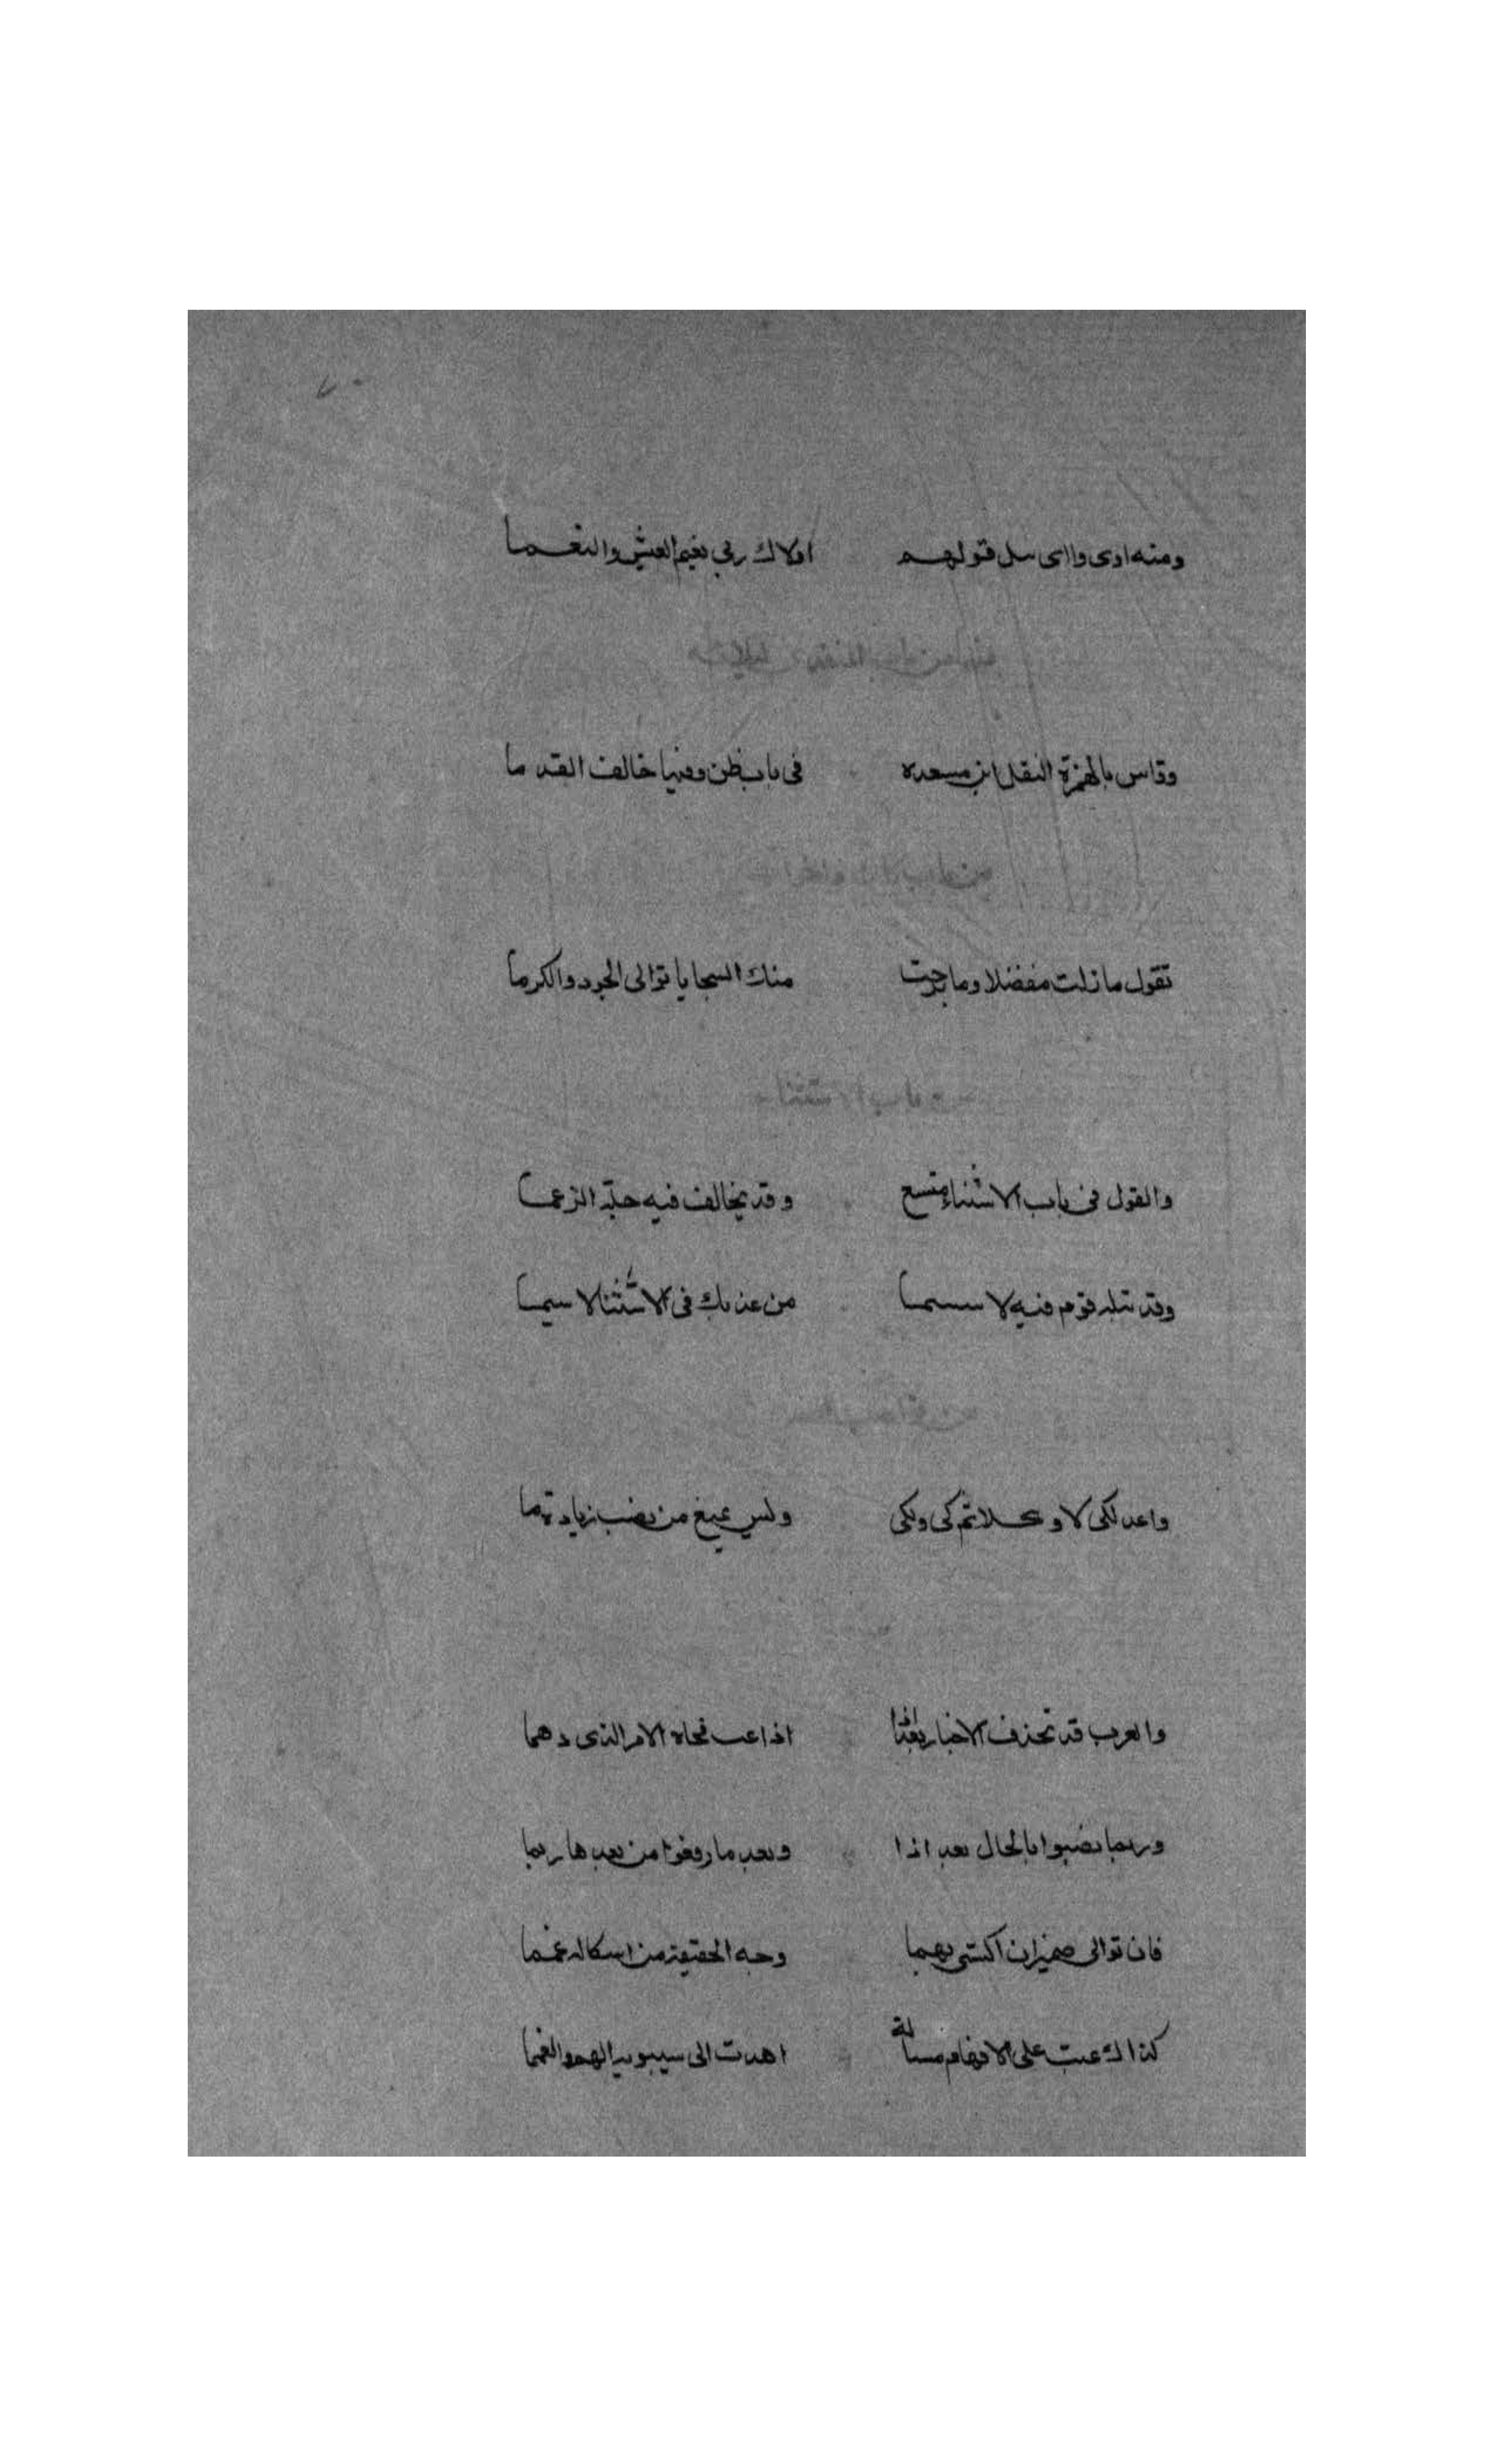 ومنه اوى واى سل قولهم اولاك ربى نعيم العيش والنعما
وقاس بالهمزة النقل ابن مسعده فى باب ظن وفيها خالف القدما
من باب كان واخواتها
تقول ما زلت مفضلا وما برحت منك السجايا توالى الجود والكرما
باب الاستثناء
والقول فى باب الاستثناء متسع وقد يخالف فيه جلة الزعما
وقد قوم فيه لا سيما من عد بك فى الاستثنا لا سيما
من نواصب
واعدد لكى لا وكيلا ثم كى ولكى وليس يمنع من نصب زيادة ما
والعرب قد تحذف الاخبار بعد اذا اذا عنت فجاه الامر الذى دهما
وربما نصبوا بالحال بعد اذا وبعد ما رفعوا من بعدها ربما
فان توالى ضميران اكتسى بهما وجه الحقيقة من اشكاله غمما
كذاك اعيت على الافهام مسالة اهدت الى سيبويه الهم والغمما